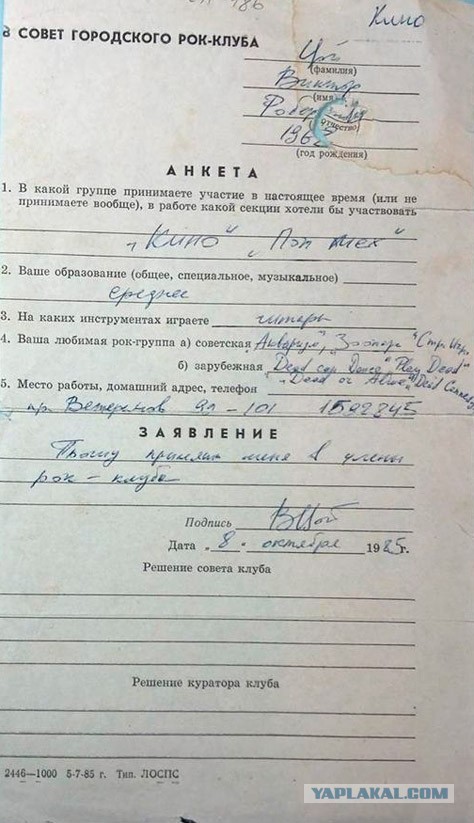 Кино
В СОВЕТ ГОРОДСКОГО РОК-КЛУБА
Цой
(фамилия)
Виктор
(имя)
Робер
(отчество)
1962
(год рождения)
АНКЕТА
1. В какой группе принимаете участие в настоящее время (или не
принимаете вообще), в работе какой секции хотели бы участвовать
„Кино" „Поп мех"
2. Ваше образование (общее, специальное, музыкальное)
среднее
3. На каких инструментах играете гитара
4. Ваша любимая рок-группа а) советская „Аквариум", Зоопарк "Стр. Игры"
б) зарубежная „Dead can Dance" "Play Dead"
„Dead or Alive"
5. Место работы, домашний адрес, телефон
пр. Ветеранов 99-101 1592845
ЗАЯВЛЕНИЕ
Прошу принять меня в члены
рок-клуба
Подпись В Цой
Дата „8" октября 1985г.
Решение совета клуба
Решение куратора клуба
2446—1000 5-7-85 г. Тип. ЛОСПС
YAPLAKAL.COM